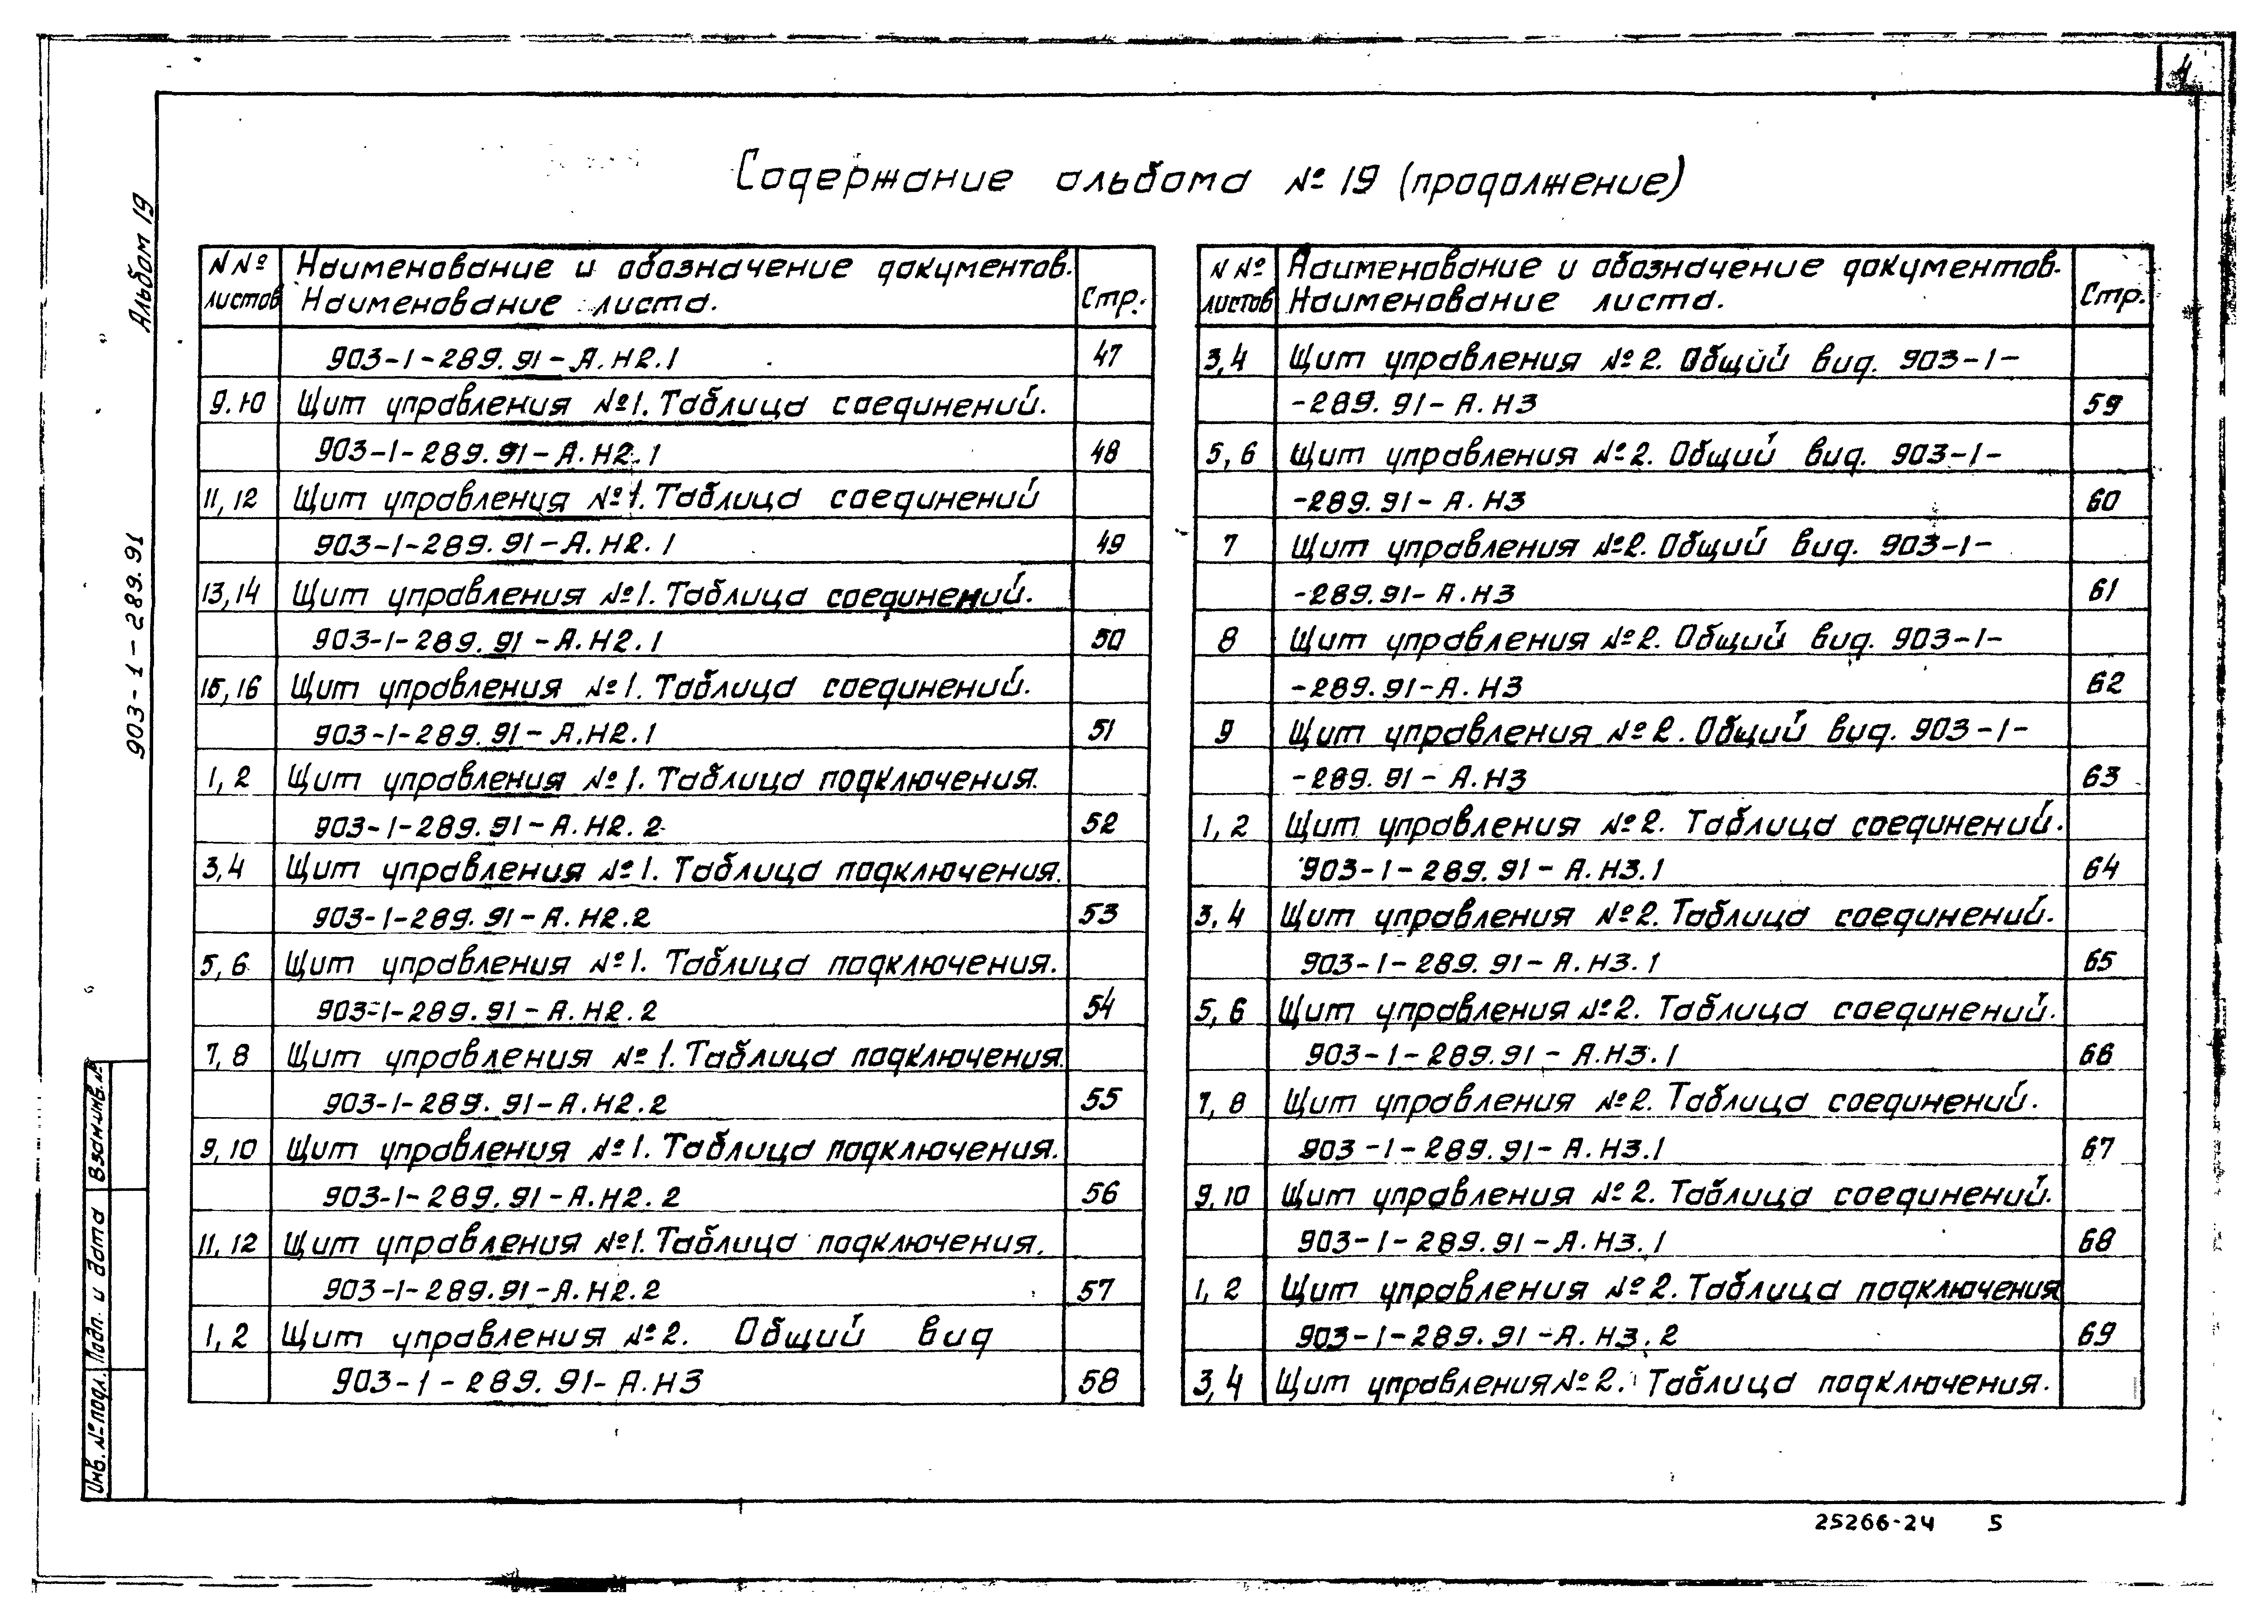 4
Содержание альбома № 19 (продолжение)
Альбом 19
903-1-289.91
N Nº листов
Наименование и обозначение документов. Наименование листа.
Стр.
903-1-289.91-А.Н2.1 47
9.10 Щит управления №1. Таблица соединений.
903-1-289.91-А.Н2.1 48
11,12 Щит управления №1. Таблица соединений
903-1-289.91-А.Н2.1 49
13,14 Щит управления №1. Таблица соединений.
903-1-289.91-А.Н2.1 50
15,16 Щит управления №1. Таблица соединений.
903-1-289.91-А.Н2.1 51
1,2 Щит управления №1. Таблица подключения.
903-1-289.91-А.Н2.2 52
3,4 Щит управления №1. Таблица подключения.
903-1-289.91-А.Н2.2 53
5,6 Щит управления №1. Таблица подключения.
903-1-289.91-А.Н2.2 54
7,8 Щит управления №1. Таблица подключения.
903-1-289.91-А.Н2.2 55
9,10 Щит управления №1. Таблица подключения.
903-1-289.91-А.Н2.2 56
11,12 Щит управления №1. Таблица подключения.
903-1-289.91-А.Н2.2 57
1,2 Щит управления №2. Общий вид
903-1-289.91-А.Н3 58
N Nº листов
Наименование и обозначение документов. Наименование листа.
Стр.
3,4 Щит управления №2. Общий вид. 903-1-
-289.91-А.Н3 59
5,6 Щит управления №2. Общий вид. 903-1-
-289.91-А.Н3 60
7 Щит управления №2. Общий вид. 903-1-
-289.91-А.Н3 61
8 Щит управления №2. Общий вид. 903-1-
-289.91-А.Н3 62
9 Щит управления №2. Общий вид. 903-1-
-289.91-А.Н3 63
1,2 Щит управления №2. Таблица соединений.
903-1-289.91-А.Н3.1 64
3,4 Щит управления №2. Таблица соединений.
903-1-289.91-А.Н3.1 65
5,6 Щит управления №2. Таблица соединений.
903-1-289.91-А.Н3.1 66
7,8 Щит управления №2. Таблица соединений.
903-1-289.91-А.Н3.1 67
9,10 Щит управления №2. Таблица соединений.
903-1-289.91-А.Н3.1 68
1,2 Щит управления №2. Таблица подключения
903-1-289.91-А.Н3.2 69
3,4 Щит управления №2. Таблица подключения.
Инв. № подл. Подп. и дата Взам.инв.№
25266-24 5